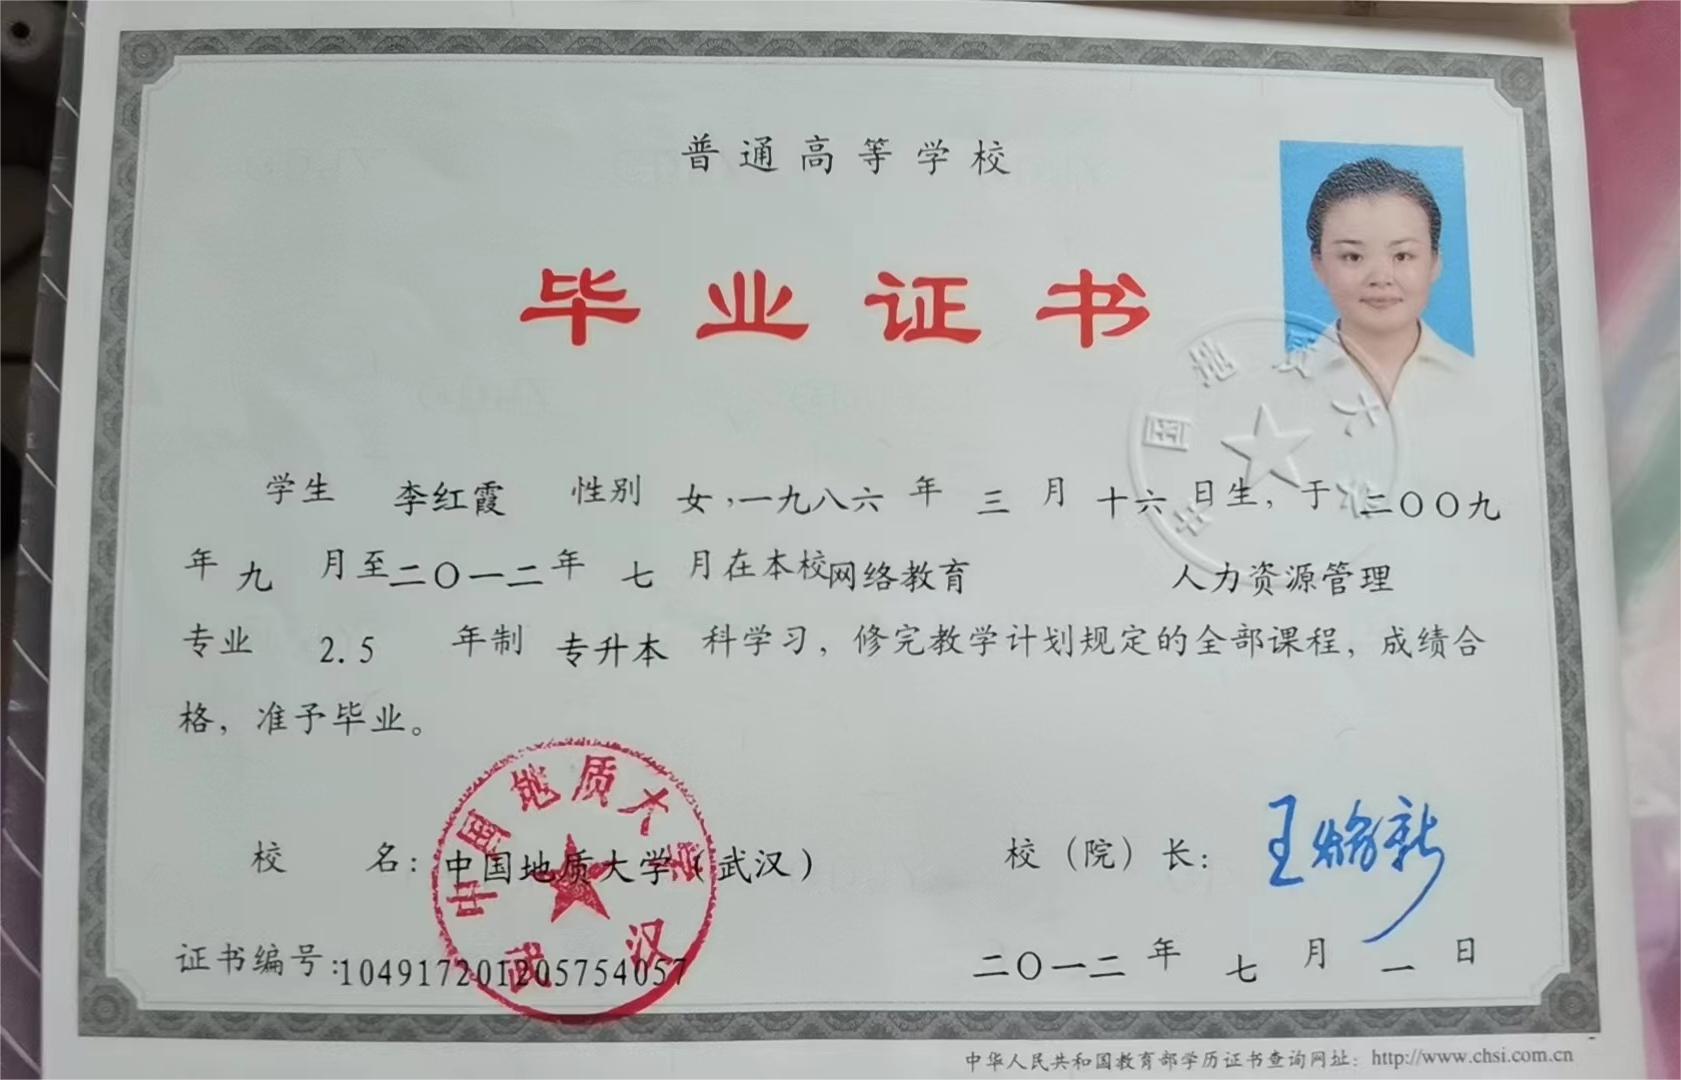 普通高等学校
毕业证书
学生 李红霞 性别 女,一九八六 年 三 月 十六 日生, 于 二〇〇九
年 九 月至 二〇一二 年 七 月在本校 网络教育 人力资源管理
专业 2.5 年制 专升本 科学习, 修完教学计划规定的全部课程, 成绩合
格, 准予毕业。
校 名: 中国地质大学(武汉) 校(院)长:
证书编号:104917201205754057 二〇一二 年 七 月 一 日
中国地质大学
武汉
中国地质大学
中华人民共和国教育部学历证书查询网址: http://www.chsi.com.cn